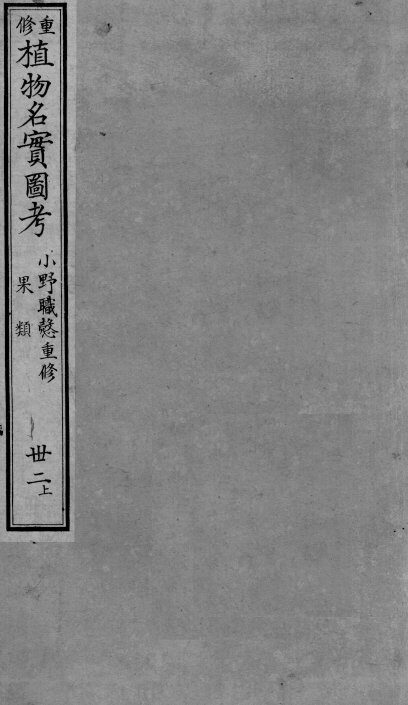 重修
植物名實圖考
小野職愨重修
果類
卅二上